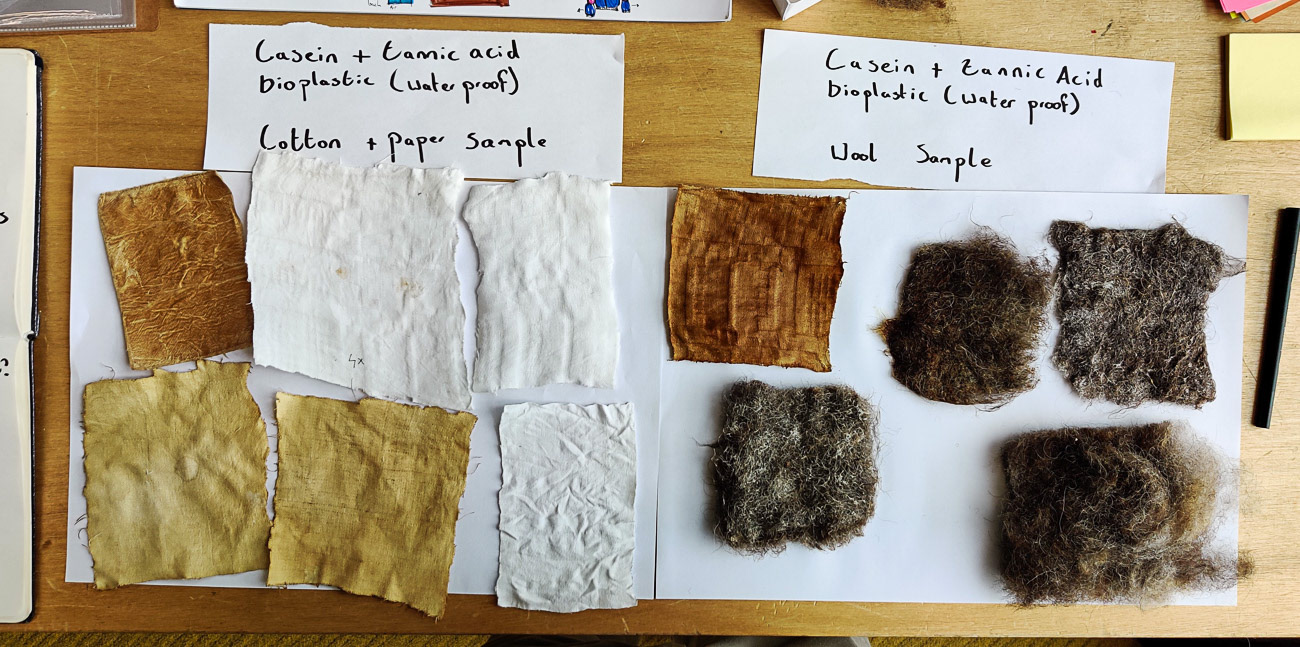 Casein + tannic acid
bioplastic (waterproof)
Cotton + paper sample
Casein + tannic Acid
bioplastic (water proof)
Wool Sample
4x
s
?